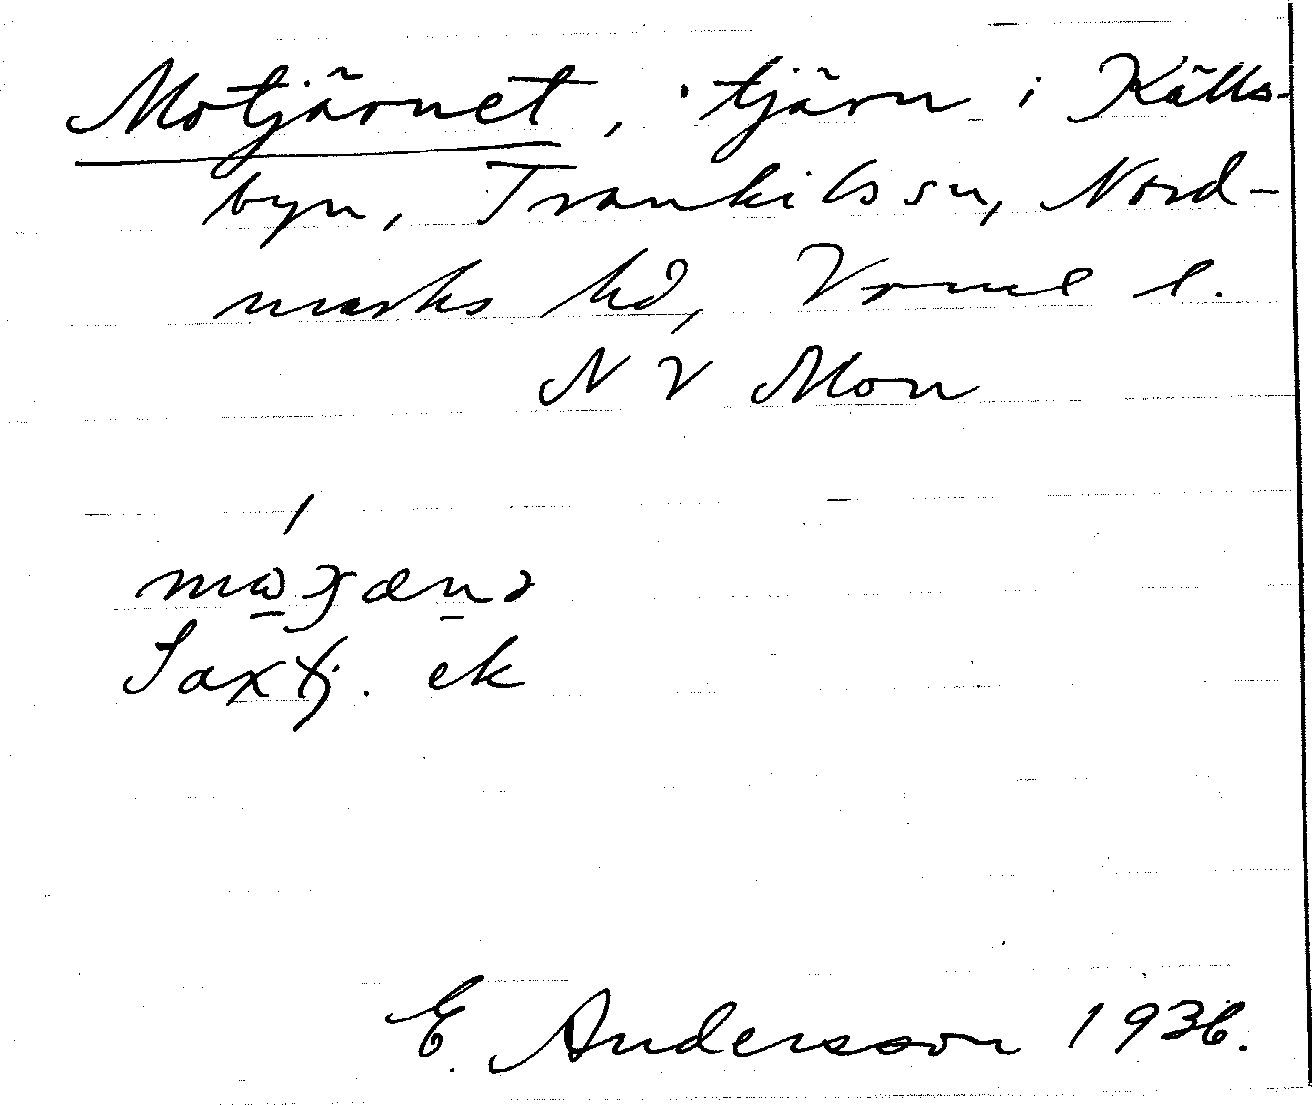 Motjärnet, tjärn i Källs-
byn, Trankilssn, Nord-
marks hd, Vrml l.
NV Mon
Saxtj. ek
E. Andersson 1936.